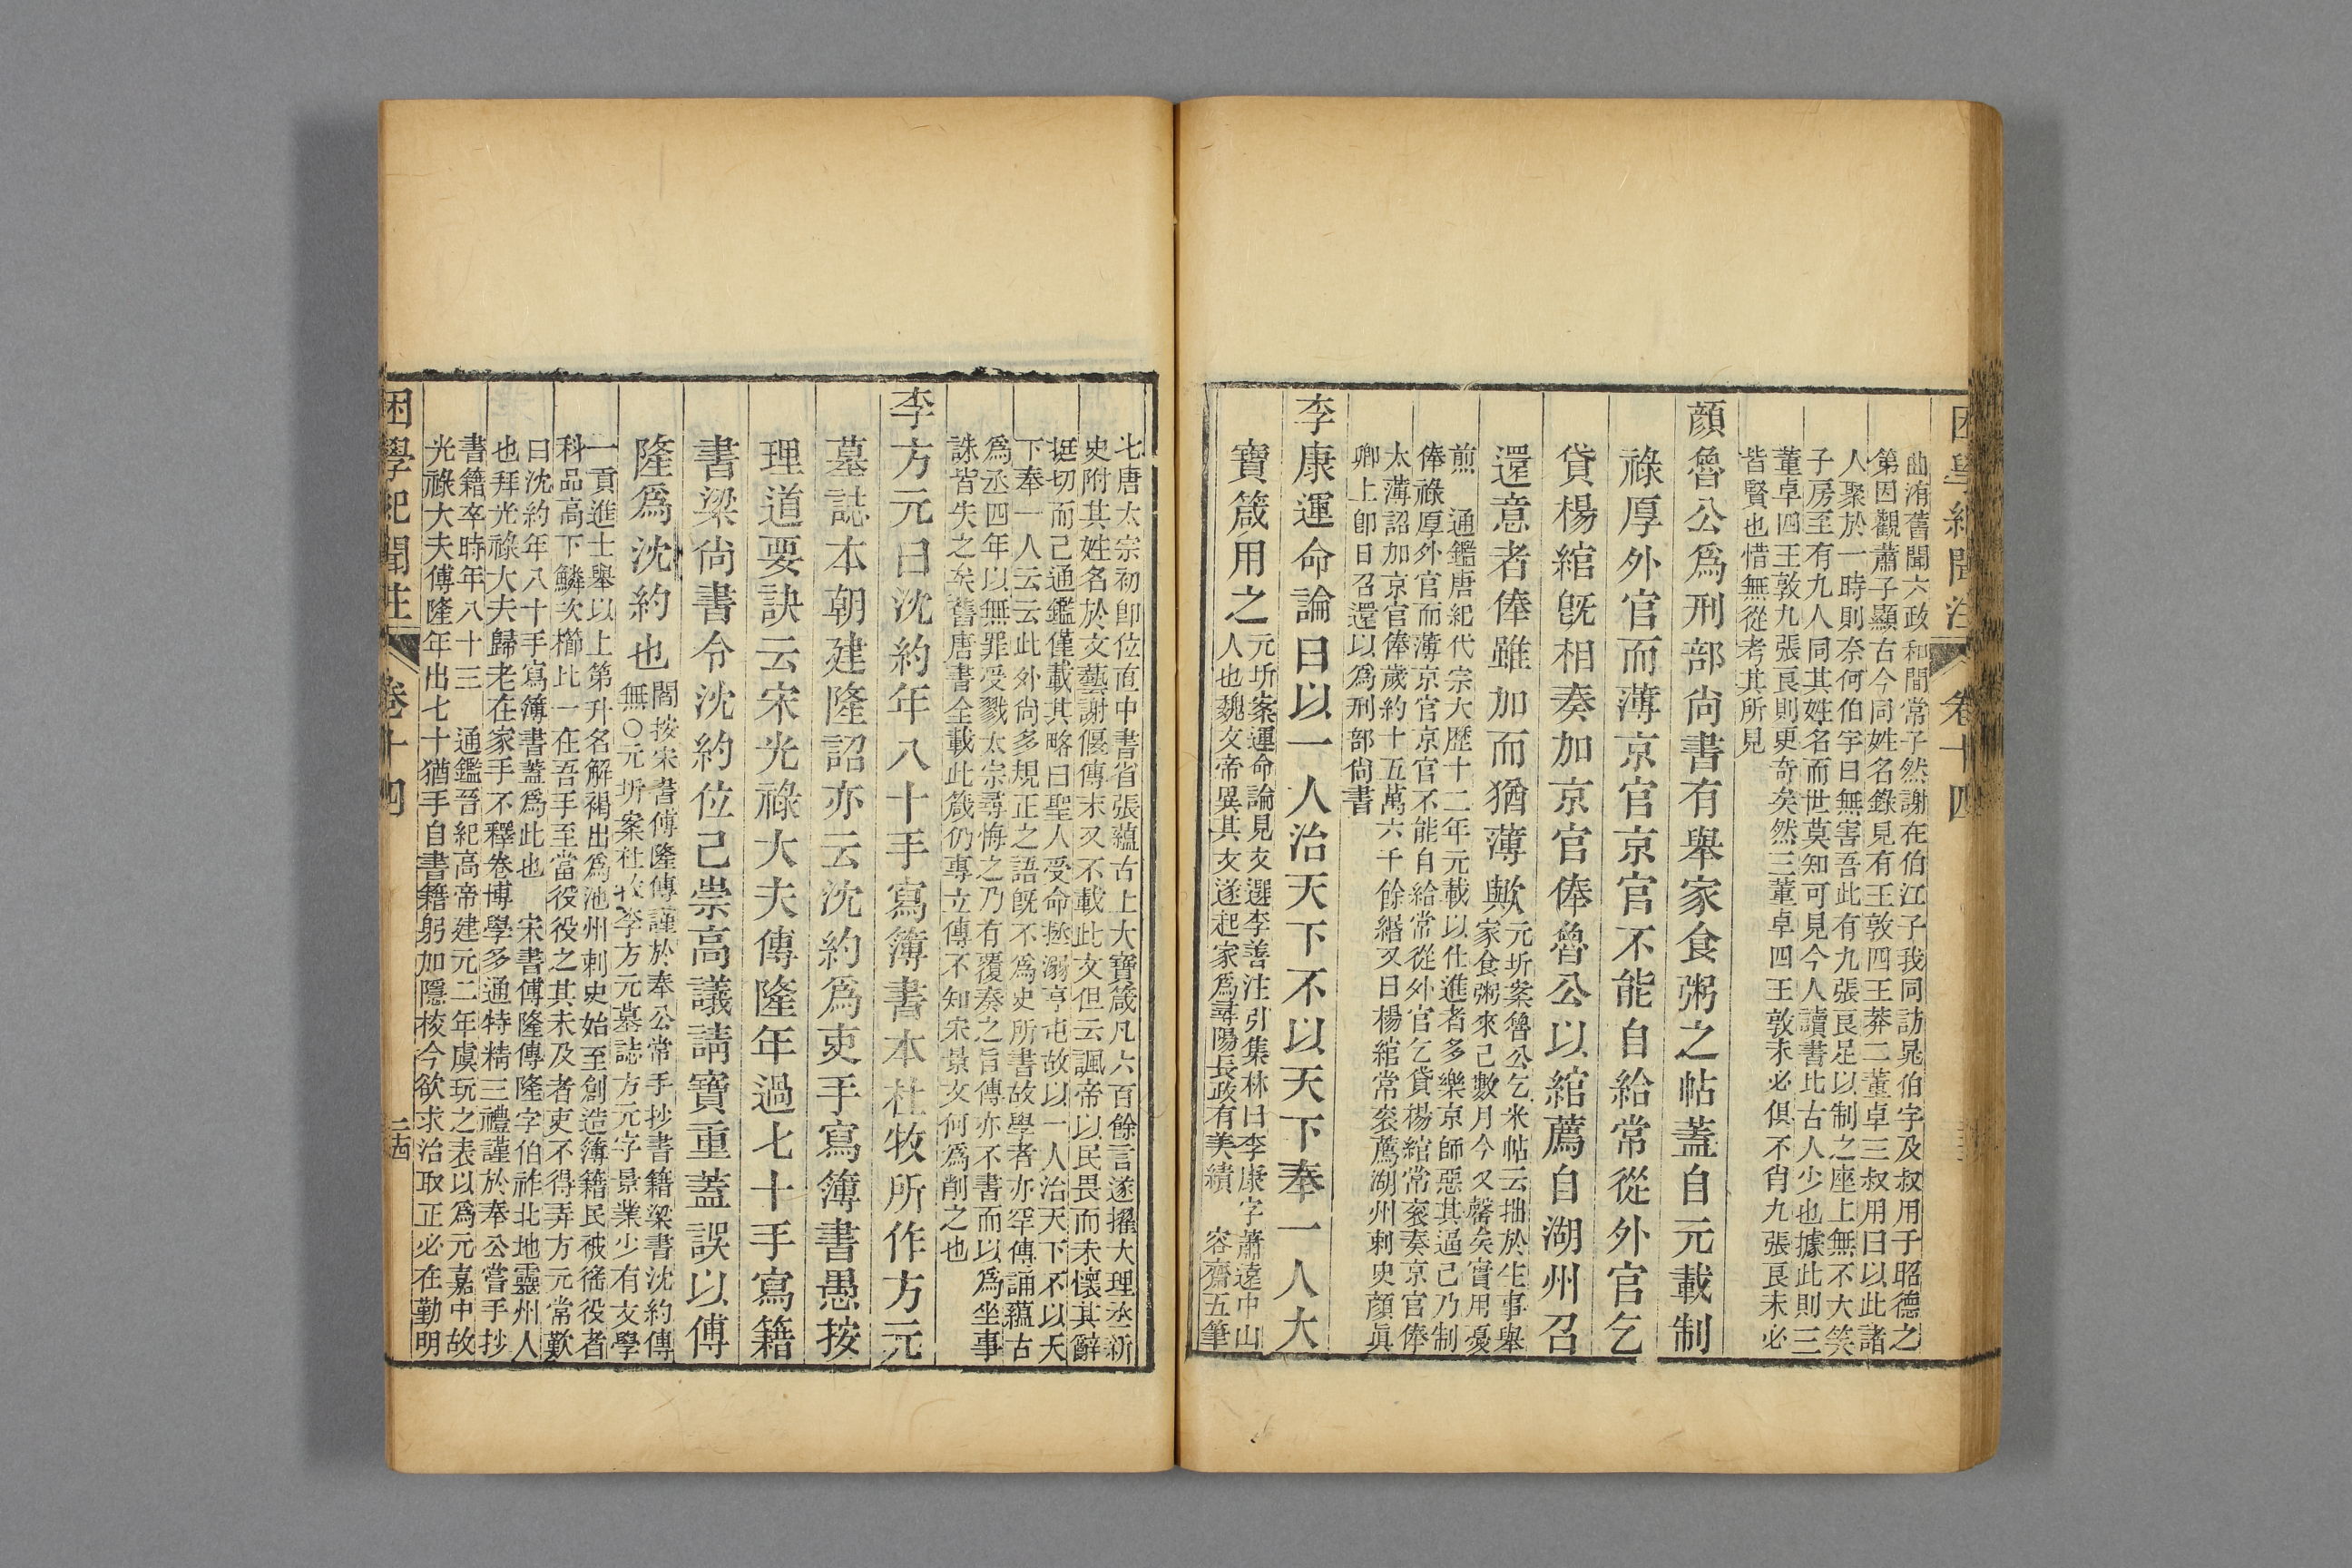 困學紀聞注 卷十四
曲洧舊聞六政和間常子然謝在伯江子我同訪晁伯宇及叔用于昭德之
第因觀蕭子顯古今同姓名錄見有王敦四王莽二董卓三叔用曰以此諸
人聚於一時則奈何伯宇曰無害吾此有九張良足以制之座上無不大笑
子房至有九人同其姓名而世莫知可見今人讀書比古人少也據此則三
董卓四王敦九張良則更奇矣然三董卓四王敦未必俱不肖九張良未必
皆賢也惜無從考其所見
顏魯公爲刑部尚書有舉家食粥之帖蓋自元載制
祿厚外官而薄京官京官不能自給常從外官乞
貸楊綰旣相奏加京官俸魯公以綰薦自湖州召
還意者俸雖加而猶薄歟
元圻案魯公乞米帖云拙於生事舉
家食粥來已數月今又罄矣實用憂
煎　通鑑唐紀代宗大歷十二年元載以仕進者多樂京師惡其逼己乃制
俸祿厚外官而薄京官京官不能自給常從外官乞貸楊綰常衮奏京官俸
太薄詔加京官俸歲約十五萬六千餘緡又曰楊綰常衮薦湖州刺史顏眞
卿上卽日召還以爲刑部尚書
李康運命論曰以一人治天下不以天下奉一人大
寶箴用之
元圻案運命論見文選李善注引集林曰李康字蕭遠中山
人也魏文帝異其文遂起家爲尋陽長政有美績　容齋五筆
七唐太宗初卽位直中書省張蘊古上大寶箴凡六百餘言遂擢大理丞新
史附其姓名於文藝謝偃傳末又不載此文但云諷帝以民畏而未懷其辭
挺切而已通鑑僅載其略曰聖人受命拯溺亨屯故以一人治天下不以天
下奉一人云云此外尚多規正之語旣不爲史所書故學者亦罕傳誦蘊古
爲丞四年以無罪受戮太宗尋悔之乃有覆奏之旨傳亦不書而以爲坐事
誅皆失之矣舊唐書全載此箴仍專立傳不知宋景文何爲削之也
李方元曰沈約年八十手寫簿書本杜牧所作方元
墓誌本朝建隆詔亦云沈約爲吏手寫簿書愚按
理道要訣云宋光祿大夫傅隆年過七十手寫籍
書梁尚書令沈約位已崇高議請寶重蓋誤以傅
隆爲沈約也
閻按宋書傅隆傳謹於奉公常手抄書籍梁書沈約傳
無○元圻案杜牧李方元墓誌方元字景業少有文學
一貢進士舉以上第升名解褐出爲池州刺史始至創造簿籍民被徭役者
科品高下鱗次櫛比一在吾手至當役役之其未及者吏不得弄方元常歎
曰沈約年八十手寫簿書蓋爲此也　宋書傅隆傳隆字伯祚北地靈州人
也拜光祿大夫歸老在家手不釋卷博學多通特精三禮謹於奉公嘗手抄
書籍卒時年八十三　通鑑晉紀高帝建元二年虞玩之表以爲元嘉中故
光祿大夫傅隆年出七十猶手自書籍躬加隱校今欲求治取正必在勤明
困學紀聞注 卷十四 二西